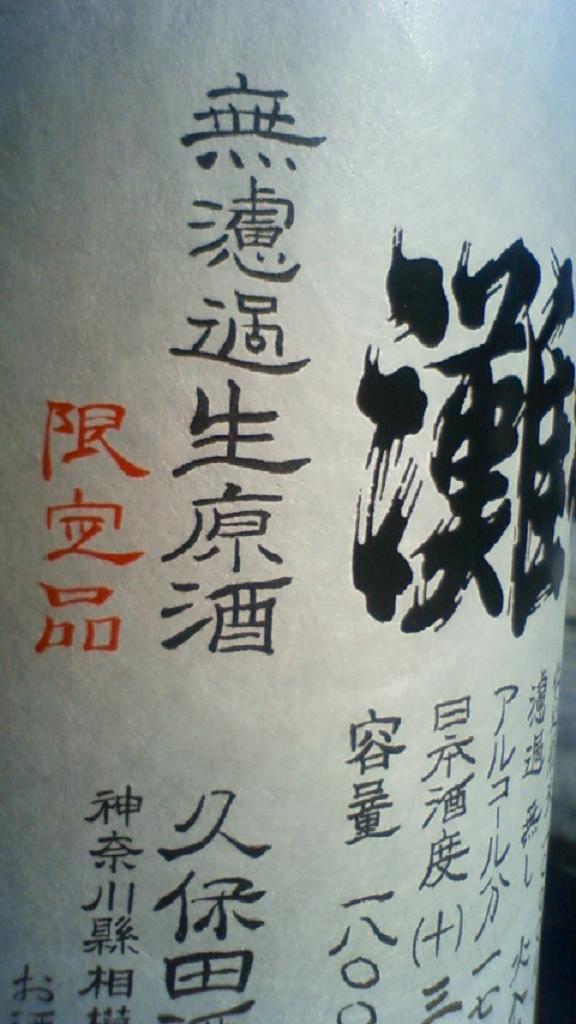 灘
濾過 無し 火
アルコール分 一七
日本酒度 (十) 三
容量 一八〇〇
無濾過生原酒
久保田酒
限定品
神奈川縣相模
お酒